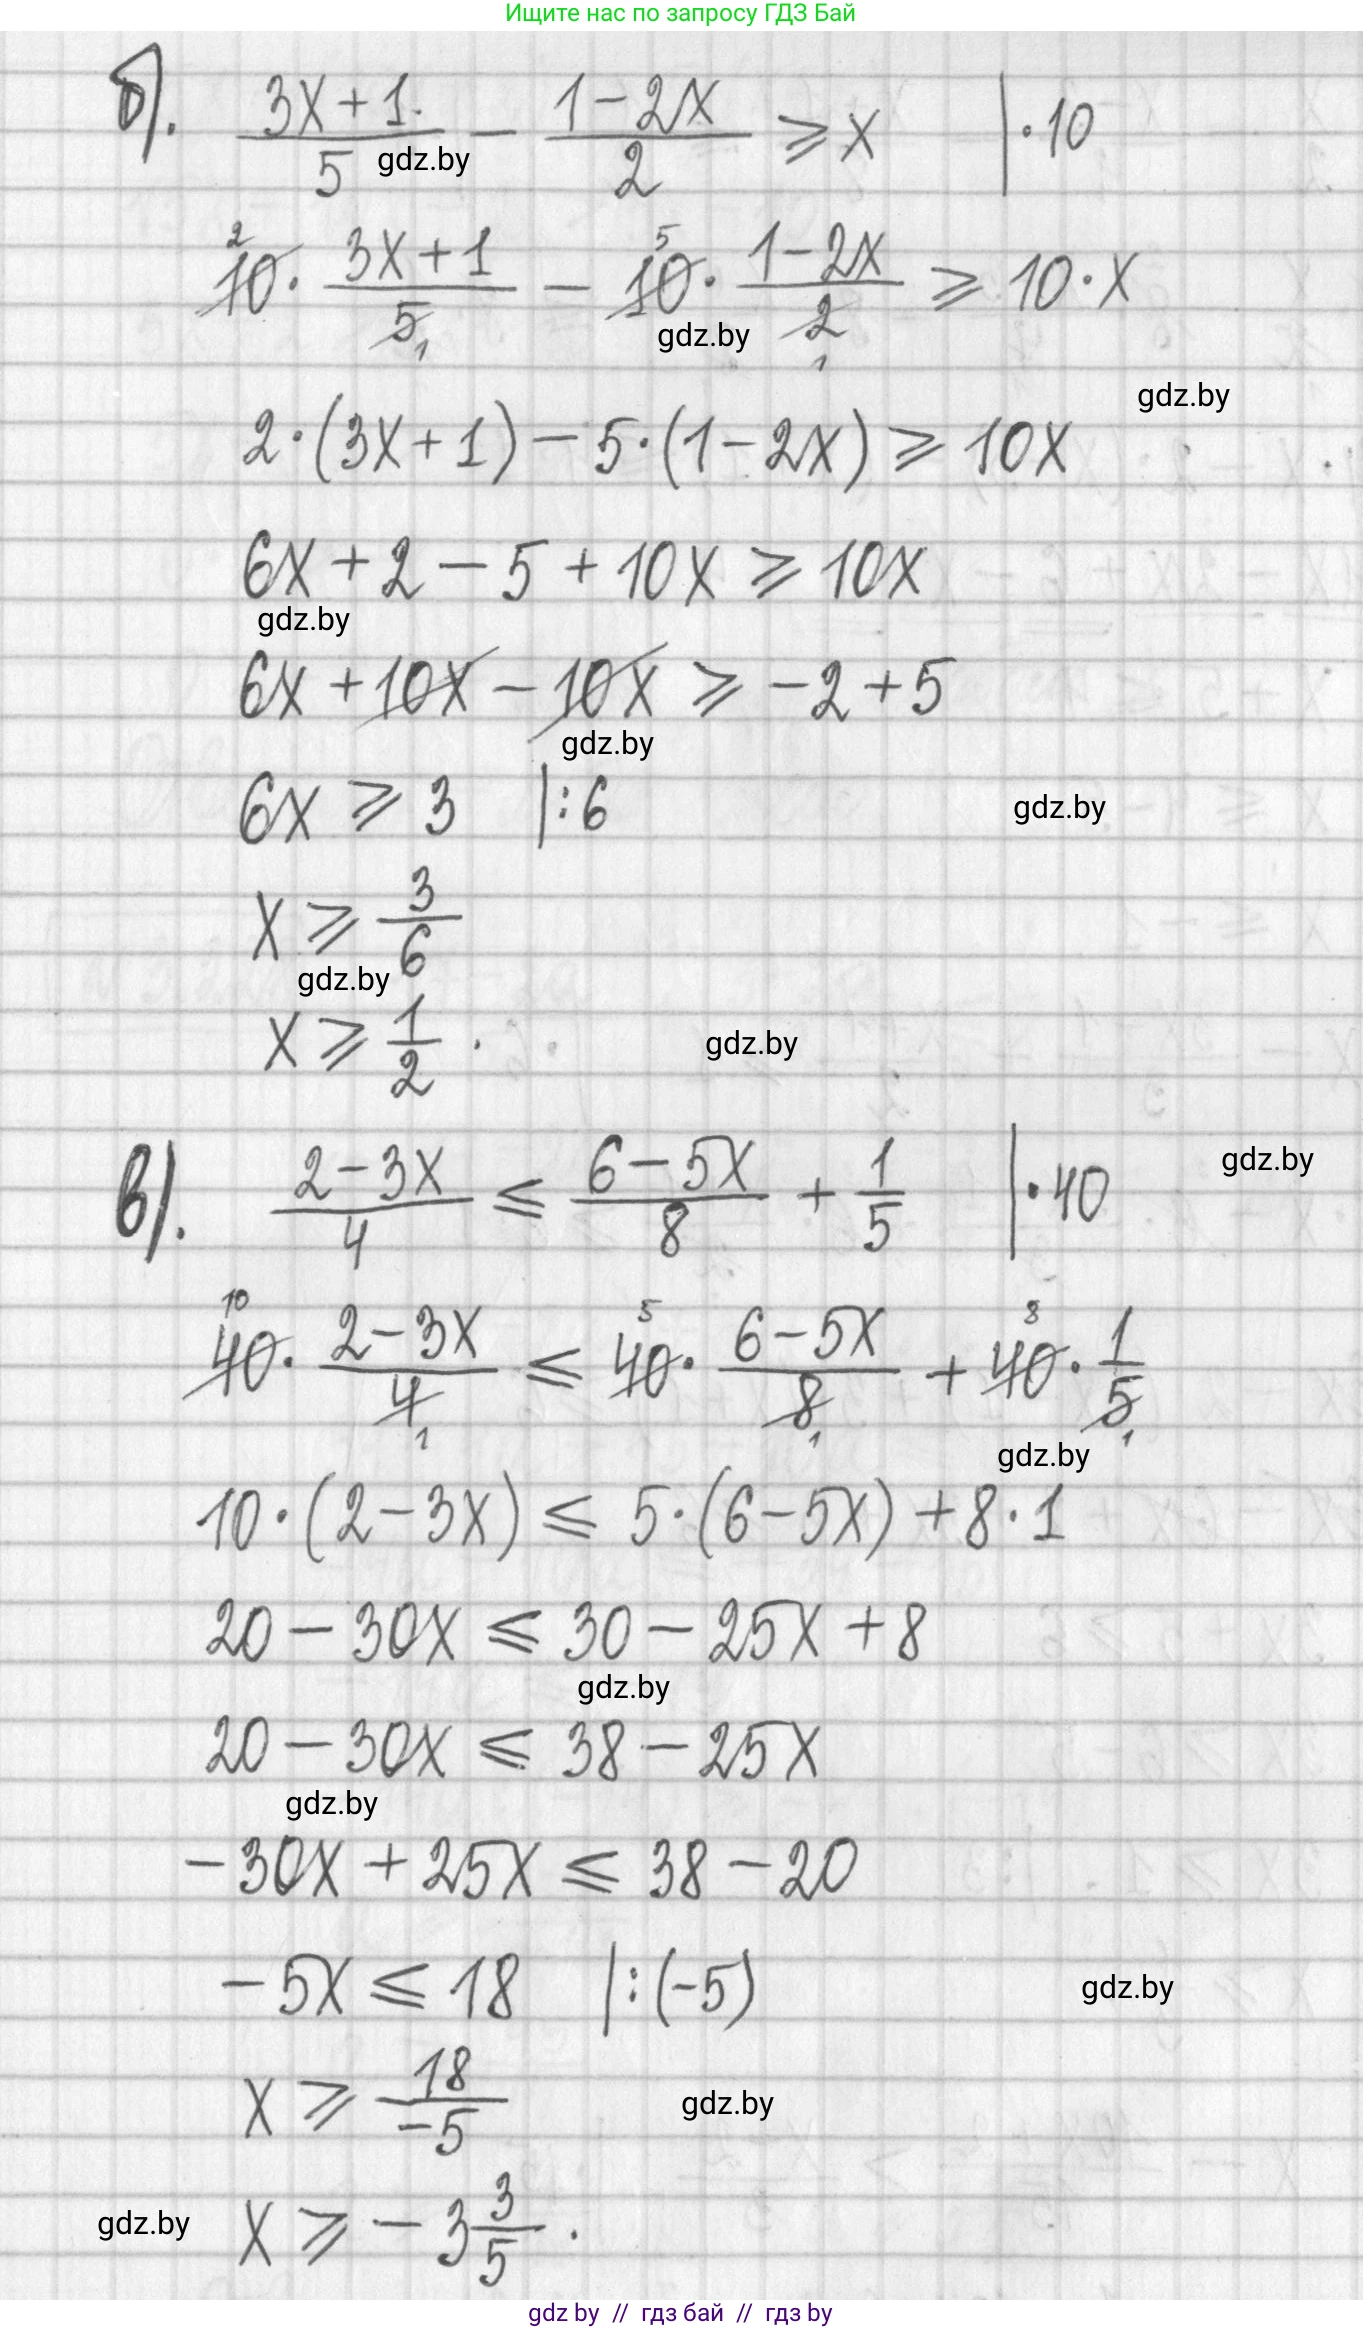 Ищите нас по запросу ГДЗ Бай
б). (3x+1)/5 − (1−2x)/2 ⩾ x |·10
gdz.by
2 5
10·(3x+1)/5 − 10·(1−2x)/2 ⩾ 10·x
1 gdz.by 1
gdz.by
2·(3x+1) − 5·(1−2x) ⩾ 10x
6x + 2 − 5 + 10x ⩾ 10x
gdz.by
6x + 10x − 10x ⩾ −2 + 5
gdz.by
6x ⩾ 3 |:6 gdz.by
x ⩾ 3/6
gdz.by
x ⩾ 1/2 . gdz.by
в). (2−3x)/4 ⩽ (6−5x)/8 + 1/5 |·40 gdz.by
10 5 8
40·(2−3x)/4 ⩽ 40·(6−5x)/8 + 40·1/5
1 1 1
gdz.by
10·(2−3x) ⩽ 5·(6−5x) + 8·1
20 − 30x ⩽ 30 − 25x + 8
gdz.by
20 − 30x ⩽ 38 − 25x
gdz.by
−30x + 25x ⩽ 38 − 20
−5x ⩽ 18 |:(−5) gdz.by
x ⩾ 18/−5 gdz.by
gdz.by x ⩾ −3 3/5 .
gdz by // гдз бай // гдз by